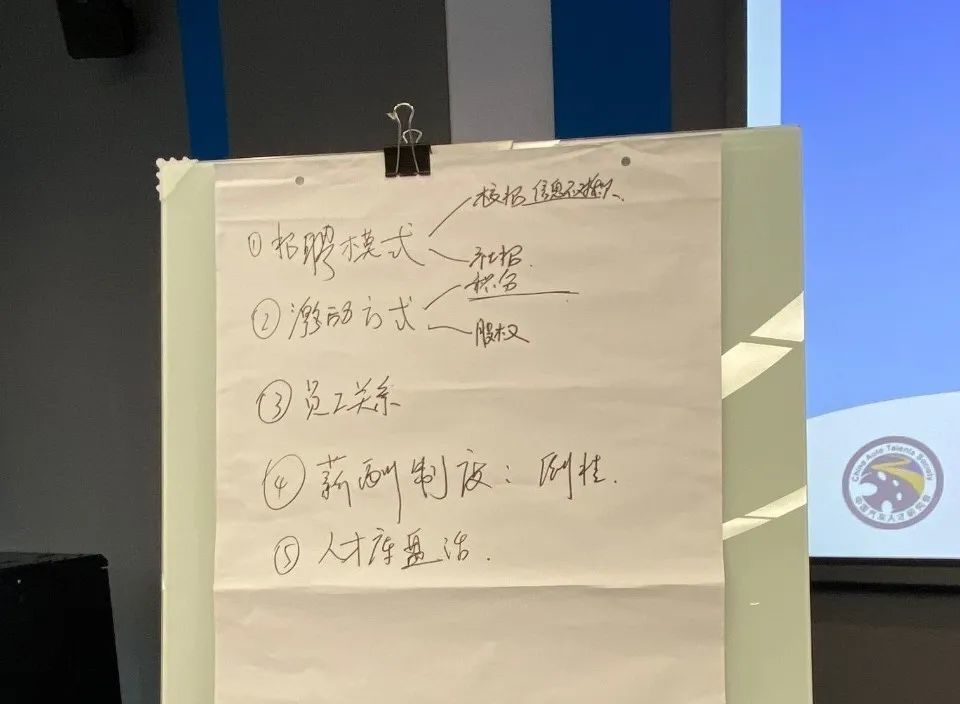 ① 招聘模式
校招 信息不对称
社招.
② 激励方式
积分
股权
③ 员工关系
④ 薪酬制度: 倒挂.
⑤ 人才库盘活.
China Auto Talents Society
中国汽车人才研究会